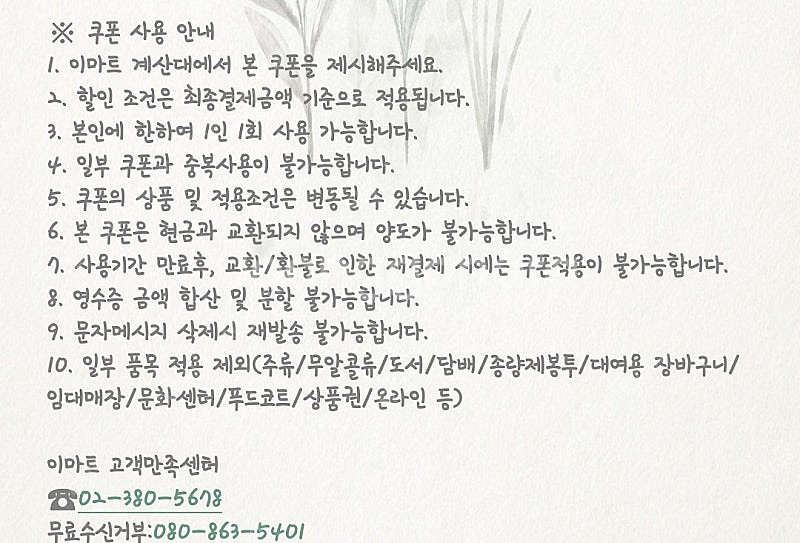 ※ 쿠폰 사용 안내
1. 이마트 계산대에서 본 쿠폰을 제시해주세요.
2. 할인 조건은 최종결제금액 기준으로 적용됩니다.
3. 본인에 한하여 1인 1회 사용 가능합니다.
4. 일부 쿠폰과 중복사용이 불가능합니다.
5. 쿠폰의 상품 및 적용조건은 변동될 수 있습니다.
6. 본 쿠폰은 현금과 교환되지 않으며 양도가 불가능합니다.
7. 사용기간 만료후, 교환/환불로 인한 재결제 시에는 쿠폰적용이 불가능합니다.
8. 영수증 금액 합산 및 분할 불가능합니다.
9. 문자메시지 삭제시 재발송 불가능합니다.
10. 일부 품목 적용 제외(주류/무알콜류/도서/담배/종량제봉투/대여용 장바구니/
임대매장/문화센터/푸드코트/상품권/온라인 등)
이마트 고객만족센터
☎02-380-5678
무료수신거부:080-863-5401